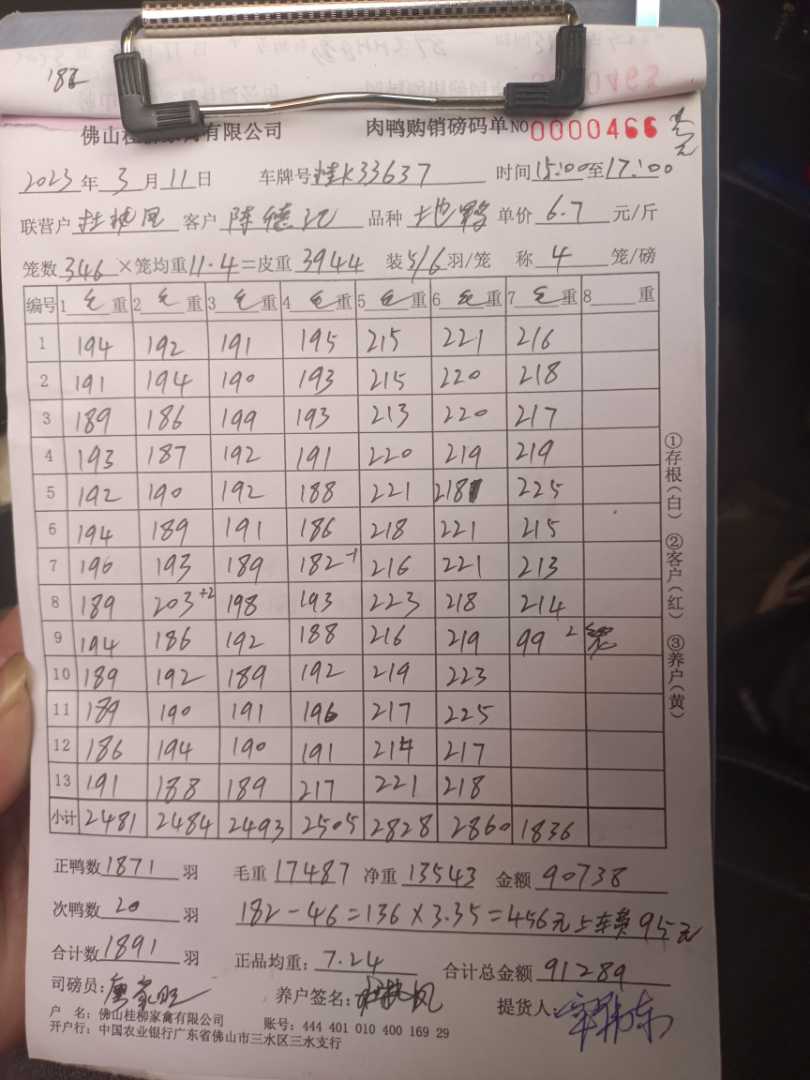 186
佛山桂柳家禽有限公司 肉鸭购销磅码单 NO 0000466
2023年3月11日 车牌号桂K33637 时间15:00至17:00
联营户 客户 陈德记 品种 土鸭 单价 6.7 元/斤
笼数346×笼均重11.4=皮重3944 装5/6羽/笼 称4笼/磅
编号 1毛重 2毛重 3毛重 4毛重 5毛重 6毛重 7毛重 8 重
1 194 192 191 195 215 221 216
2 191 194 190 193 215 220 218
3 189 186 199 193 213 220 217
4 193 187 192 191 220 219 219
5 192 190 192 188 221 218 225
6 194 189 191 186 218 221 215
7 190 193 189 182-1 216 221 213
8 189 203+2 198 193 223 218 214
9 194 186 192 188 216 219 99 2笼
10 189 192 189 192 219 223
11 189 190 191 196 217 225
12 186 194 190 191 214 217
13 191 188 189 217 221 218
小计 2481 2484 2493 2505 2828 2860 1836
正鸭数1871羽 毛重17487 净重13543 金额90738
次鸭数20羽 182-46=136×3.35=456元上车费95元
合计数1891羽 正品均重:7.24 合计总金额91289
司磅员: 养户签名: 提货人:
户 名:佛山桂柳家禽有限公司 账号:444 401 010 400 169 29
开户行:中国农业银行广东省佛山市三水区三水支行
①存根(白) ②客户(红) ③养户(黄)